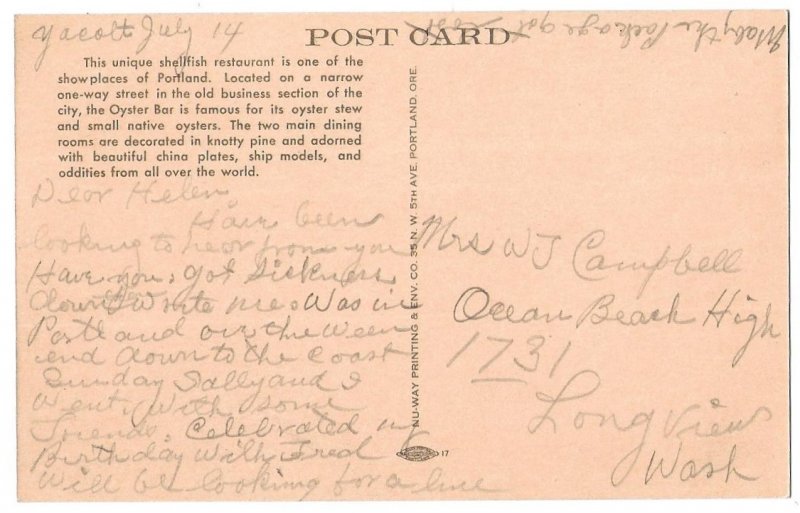 Yacolt July 14
POST CARD
Maby the Package got lost
This unique shellfish restaurant is one of the
showplaces of Portland. Located on a narrow
one-way street in the old business section of the
city, the Oyster Bar is famous for its oyster stew
and small native oysters. The two main dining
rooms are decorated in knotty pine and adorned
with beautiful china plates, ship models, and
oddities from all over the world.
Dear Helen
Have been
looking to hear from you
Have you got Sickness
down Write me. Was in
Portland over the Ween
end down to the Coast
Sunday Sally and I
Went With some
Friends. Celebrated my
Birthday With Fred
Will be looking for a line
NU-WAY PRINTING & ENV. CO. 35 N. W. 5TH AVE. PORTLAND, ORE.
17
Mrs WJ Campbell
Ocean Beach High
1731
Long View
Wash